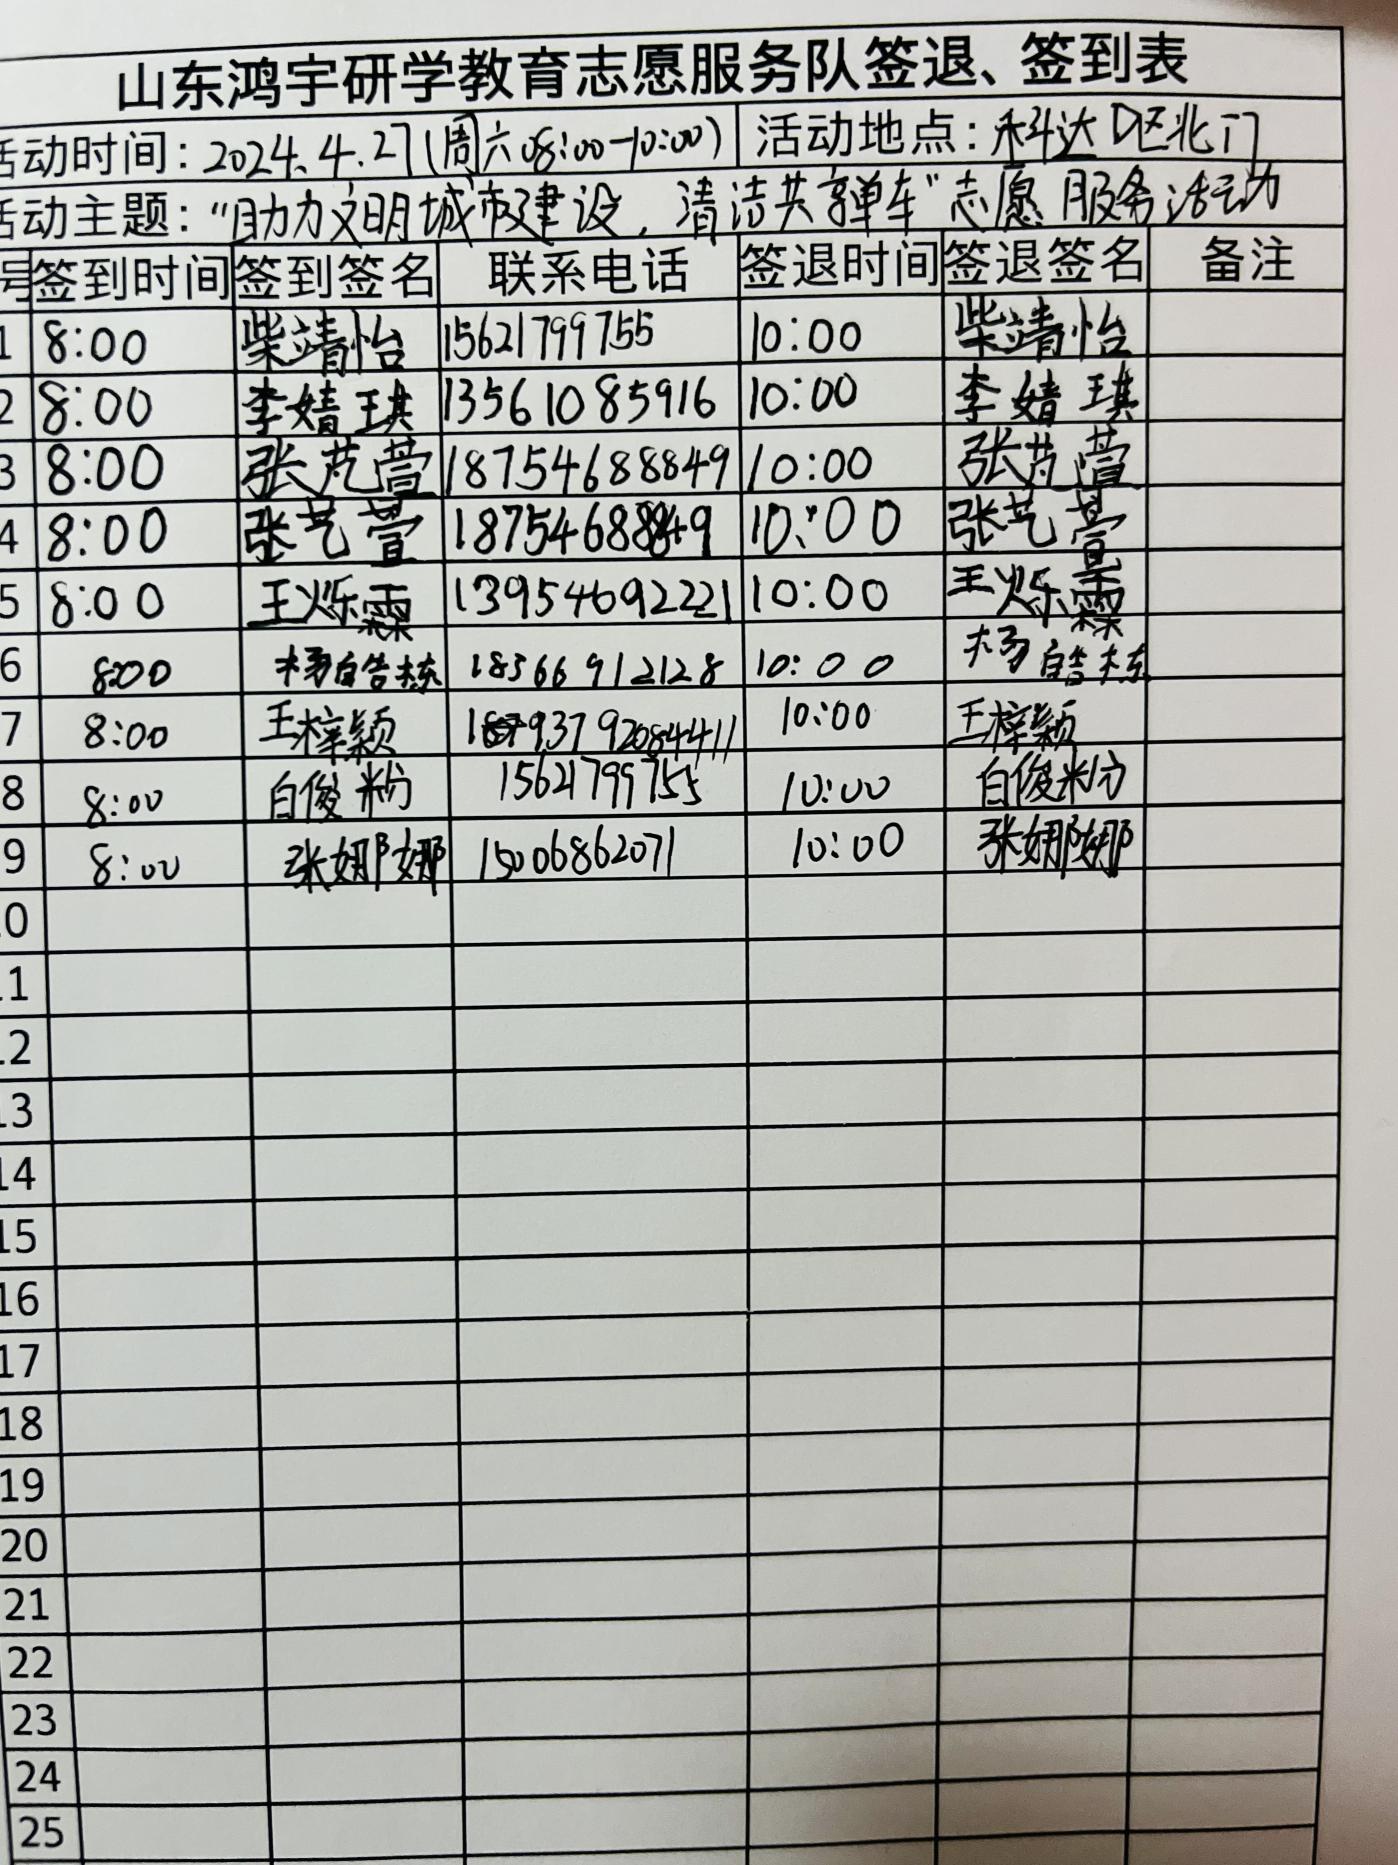 山东鸿宇研学教育志愿服务队签退、签到表
活动时间：2024.4.27(周六08:00-10:00) 活动地点：科达D区北门
活动主题："助力文明城市建设，清洁共享单车"志愿服务活动
号 签到时间 签到签名 联系电话 签退时间 签退签名 备注
1 8:00 柴靖怡 15621799755 10:00 柴靖怡
2 8:00 李婧琪 13561085916 10:00 李婧琪
3 8:00 张芃萱 18754688849 10:00 张芃萱
4 8:00 张艺萱 18754688849 10:00 张艺萱
5 8:00 王烁霖 13954692221 10:00 王烁霖
6 8:00 杨皓栋 18366912128 10:00 杨皓栋
7 8:00 王梓颖 10:00 王梓颖
8 8:00 白俊粉 15621799755 10:00 白俊粉
9 8:00 张娜娜 15006862071 10:00 张娜娜
10
11
12
13
14
15
16
17
18
19
20
21
22
23
24
25